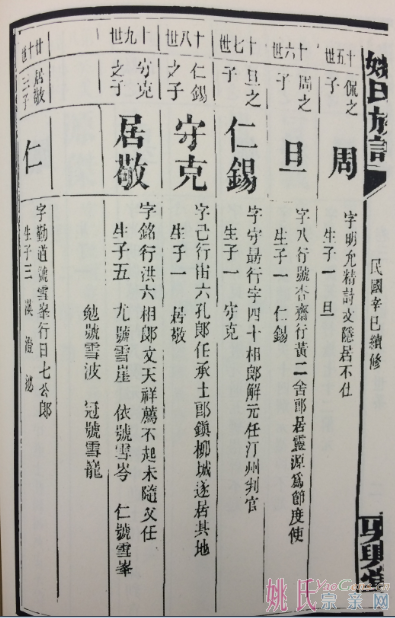 姚氏族譜
民國辛巳續修
十五世
侃之子
周
字明允精詩文隱居不仕
生子一 旦
十六世
周之子
旦
字八行號杏齋行黃二舍郎居靈源為節度使
生子一 仁錫
十七世
旦之子
仁錫
字守勗行字四十相郎解元任汀州判官
生子一 守克
十八世
仁錫之子
守克
字己行宙六孔郎任承士郎鎮柳城遂居其地
生子一 居敬
十九世
守克之子
居敬
字銘行洪六相郎文天祥薦不起未隨文任
生子五 尤號雪崖 依號雪岑 仁號雪峯
勉號雪波 冠號雪龍
廿世
居敬三子
仁
字勤道號雪峯行日七公郎
生子三 漢 澄
姚氏宗親网
YaoGens.cn